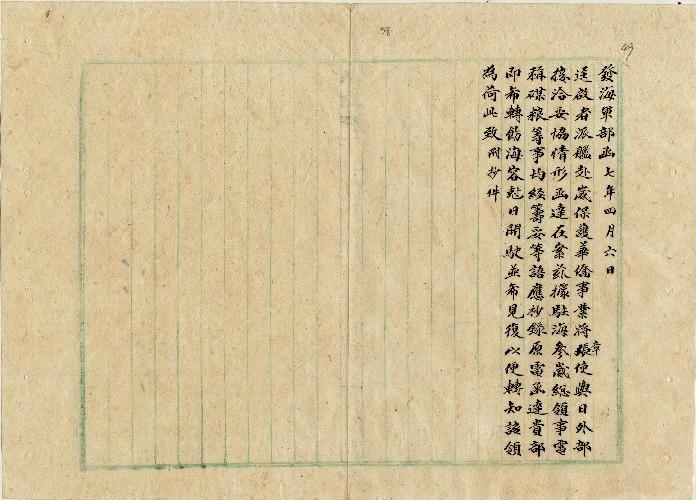 發海軍部函七年四月六日
逕啟者派艦赴崴保護華僑事業將章使與日外部
接洽妥協情形函達在案茲據駐海參崴總領事電
稱煤粮等事均經籌妥等語應抄錄原電函達貴部
即希轉飭海容尅日開駛並希見復以便轉知該領
為荷此致附抄件